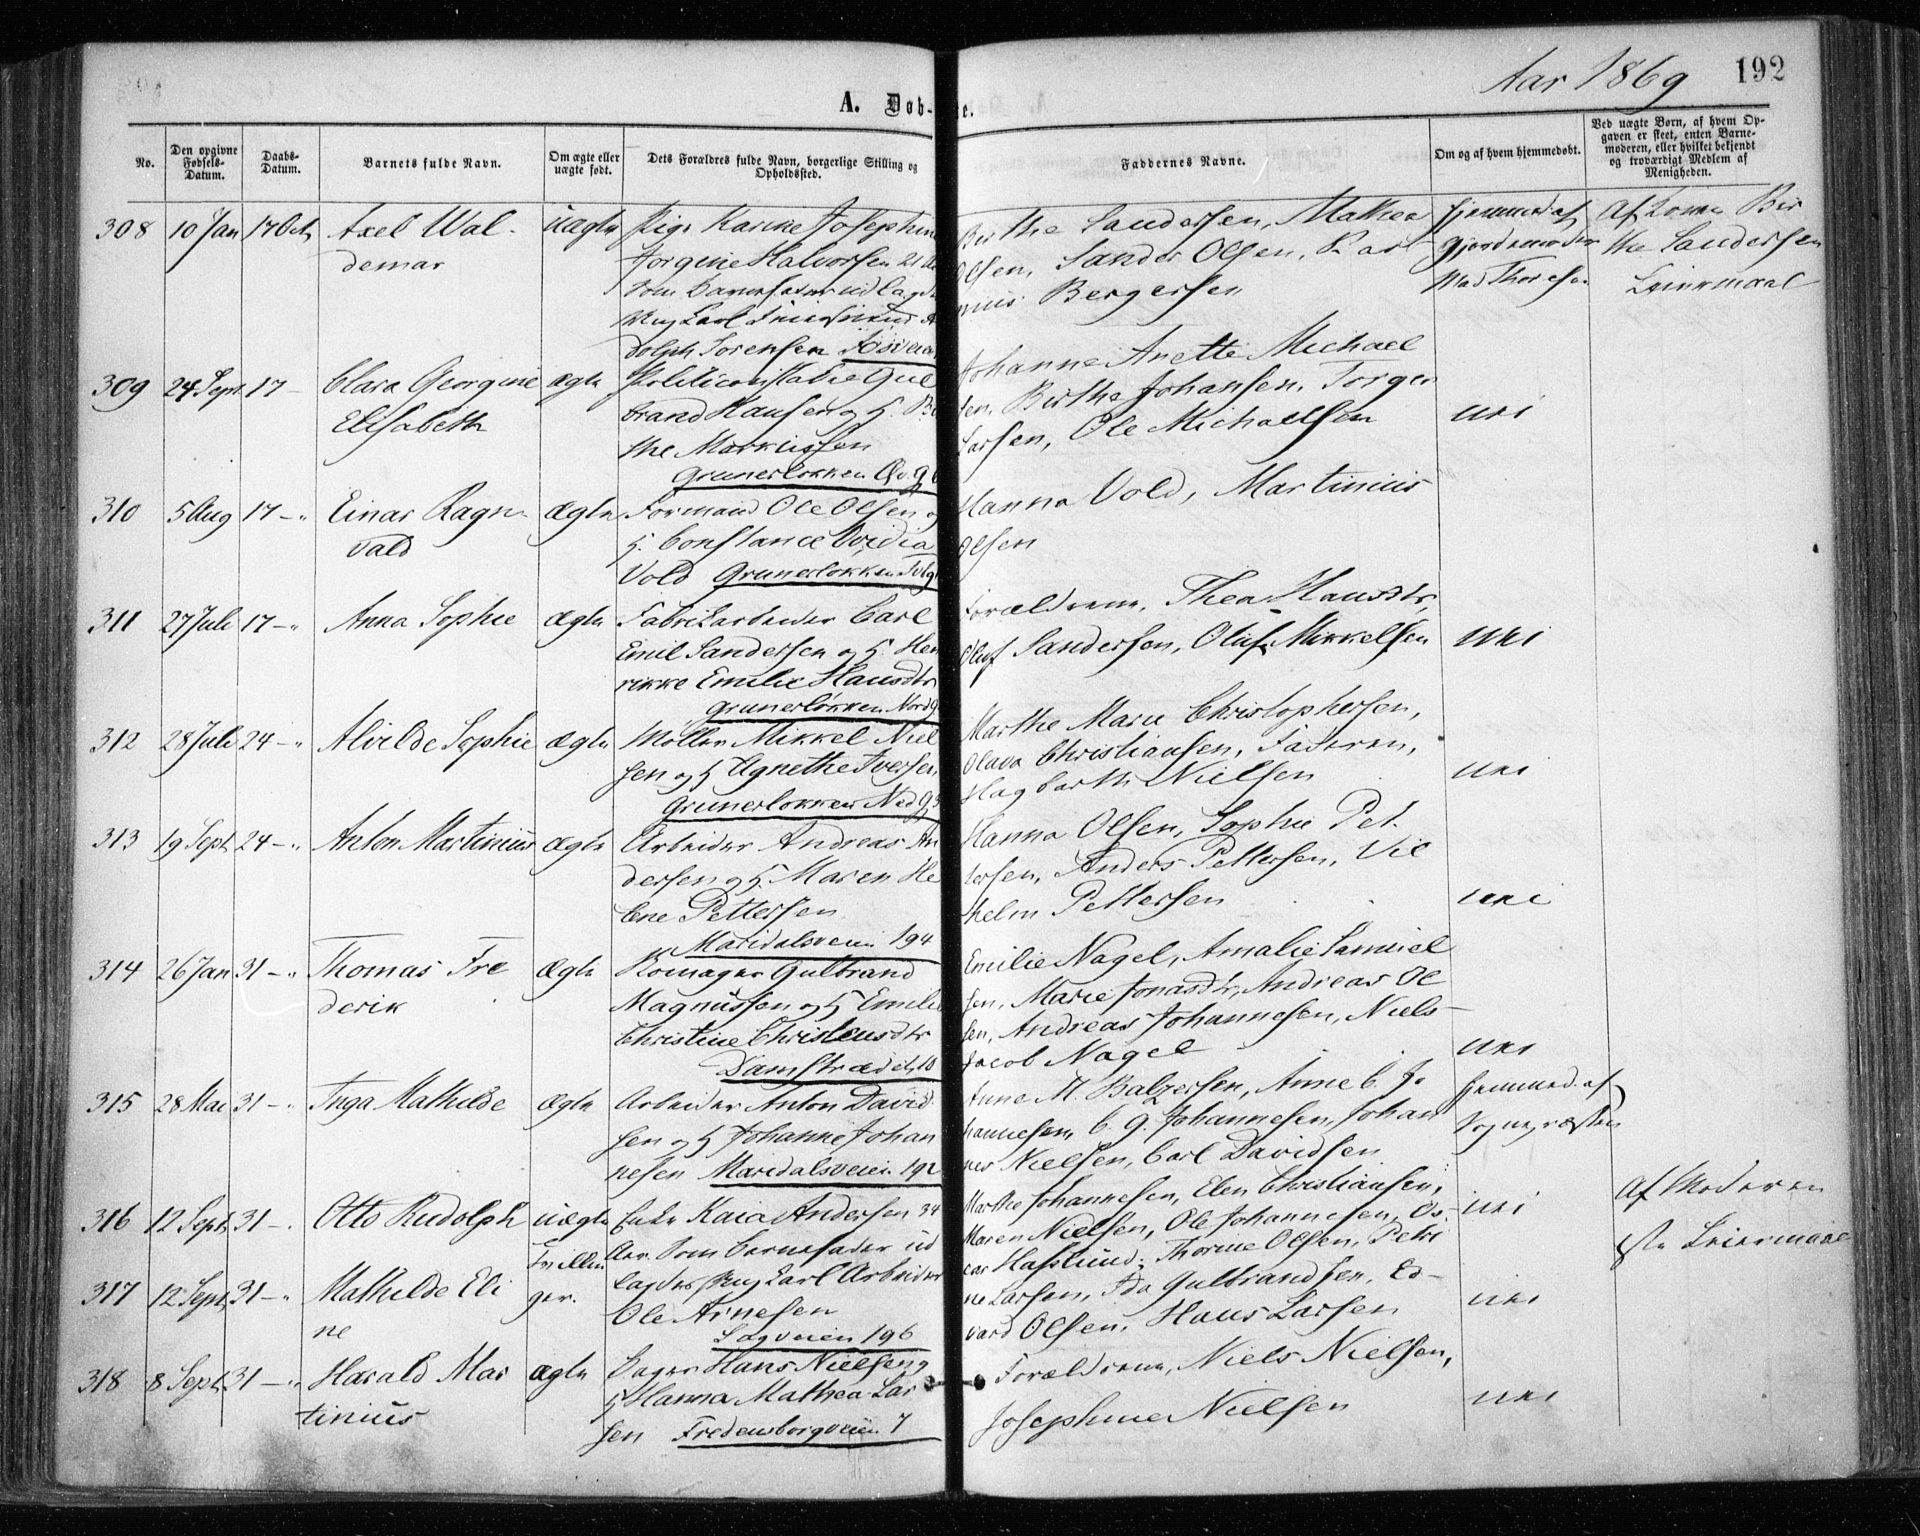 Aar 1869 192
A. Døb-
No.
Den opgivne Fødsels-Datum.
Daabs-Datum.
Barnets fulde Navn.
Om ægte eller uægte født.
Dets Forældres fulde Navn, borgerlige Stilling og Opholdssted.
Faddernes Navne.
Om og af hvem hjemmedøbt.
Ved uægte Børn, af hvem Opgaven er skeet, enten Barnemoderen, eller hvilket bekjendt og troværdigt Medlem af Menigheden.
308 10 Jan 17 Oct Axel Wal-
demar
uægte
Pige Karine Josephine
Jorgine Halvorsen 21 Aar
som Barnefader udlagdes
Ung Karl
dolph Sorensen
Birthe Sandersen, Mathea
Olsen, Sander Olsen, Ras-
mus Bergersen
Hjemmed af
Gjordemoder
Mad Thoresen
Af Kone Bir
the Sandersen
Leiermaal
309 24 Sept 17 - Clara Georgine
Elisabeth
ægte
Politiconstabel Gul
brand Hansen og H. Bir
the Markussen
Grunerløkken
Johanne Anette Michael
sen, Birthe Johansen, Torger
Larsen, Ole Michaelsen
nei
310 5 Aug 17 - " Einar Ragn-
vald
ægte
Formand Ole Olsen og
H. Constance Ovidia
Vold Grunerløkken
Hanna Vold, Martinius
Olsen
311 27 Juli 17 - " Anna Sophie
ægte
Fabrikarbeider Carl
Emil Sandersen og H. Hen
rikke Emilie Hansdtr
Grunerløkken Nordg
Forældrene, Thea Hansdtr,
Oluf Sandersen, Oluf Mikkelsen
nei
312 28 Juli 24 - " Alvilde Sophie
ægte
Møller Mikkel Niel
sen og H Agnethe Iversen
Grunerløkken Nedg
Marthe Marie Christophersen,
Olava Christiansen, Faderen,
Hagbarth Nielsen
nei
313 19 Sept 24 - " Anton Martinius
ægte
Arbeider Andreas An
dersen og H. Maren He
lene Pettersen
Maridalsveien 194
Hanna Olsen, Sophie Pet-
tersen, Anders Pettersen, Vil
helm Pettersen
nei
314 26 Jan 31 - " Thomas Fre
derik
ægte
Romager Gulbrand
Magnussen og H Emilie
Christine Christensdtr
Damstrædet 10
Emilie Nagel, Amalie Samuel
sen, Marie Jonasdtr, Andreas Ol
sen, Andreas Johannesen, Niels
Jacob Nagel
nei
315 28 Mai 31 - " Inga Mathilde
ægte
Arbeider Anton David
sen og H Johanne Johan
nesen Maridalsveien 192
Anne M. Balzersen, Anne C. Jo
hannesen, C. G. Johannesen, Johan
nes Nielsen, Carl Davidsen
Hjemmed. af
Sognepræsten
316 12 Sept. 31 - Otto Rudolph
uægte
Tvillin
ger.
Enke Kaia Andersen 34
Aar. Som Barnefader ud
lagdes Ung Karl Arbeider
Ole Arnesen
Sagveien 196
Marthe Johannesen, Elen Christiansen,
Maren Nielsen, Ole Johannesen, Os-
car Hasslund.
nei
Af Moderen
Leiermaal
317 12 Sept 31 - " Mathilde Eli
ne
Thorine Olsen, Petri
ne Larsen, Ida Gulbrandsen, Ed-
vard Olsen, Hans Larsen
nei
318 8 Sept. 31 - " Harald Mar
tinius
ægte
Bager Hans Nielsen og
H Hanna Mathea Lar
sen Fredensborgveien 7
Forældrene, Niels Nielsen,
Josephine Nielsen
nei